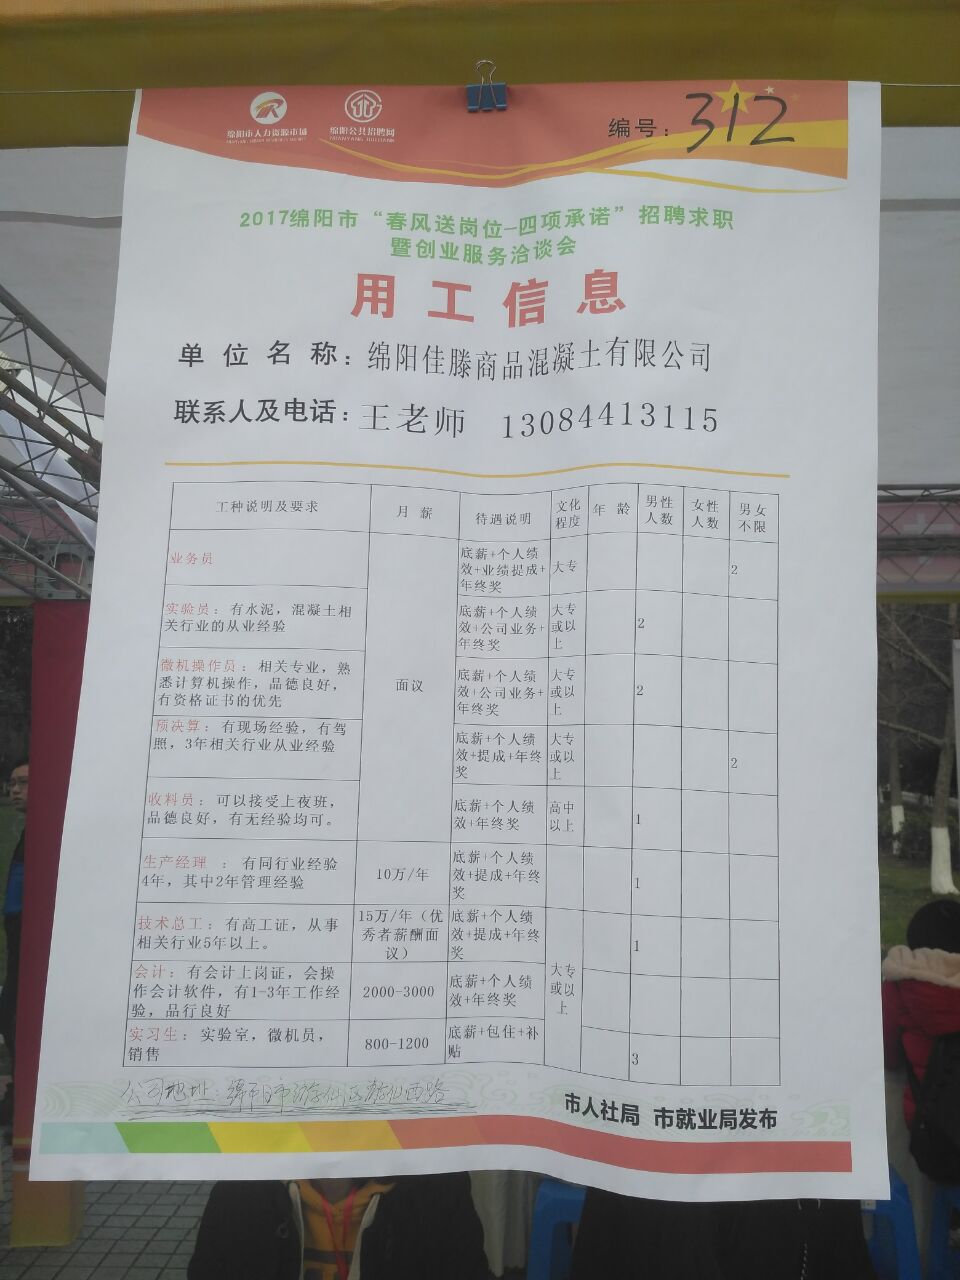 绵阳市人力资源市场
绵阳公共招聘网
MIANYANG JIUYEWANG
编号：312
2017绵阳市“春风送岗位-四项承诺”招聘求职
暨创业服务洽谈会
用工信息
单位名称：绵阳佳滕商品混凝土有限公司
联系人及电话：王老师 13084413115
工种说明及要求 月薪 待遇说明 文化程度 年龄 男性人数 女性人数 男女不限
业务员
底薪+个人绩
效+业绩提成+
年终奖
大专
2
实验员：有水泥，混凝土相
关行业的从业经验
底薪+个人绩
效+公司业务+
年终奖
大专
或以
上
2
微机操作员：相关专业，熟
悉计算机操作，品德良好，
有资格证书的优先
面议
底薪+个人绩
效+公司业务+
年终奖
大专
或以
上
2
预决算：有现场经验，有驾
照，3年相关行业从业经验
底薪+个人绩
效+提成+年终
奖
大专
或以
上
2
收料员：可以接受上夜班，
品德良好，有无经验均可。
底薪+个人绩
效+年终奖
高中
以上
1
生产经理 ：有同行业经验
4年，其中2年管理经验
10万/年
底薪+个人绩
效+提成+年终
奖
1
技术总工：有高工证，从事
相关行业5年以上。
15万/年（优
秀者薪酬面
议）
底薪+个人绩
效+提成+年终
奖
大专
或以
上
1
会计：有会计上岗证，会操
作会计软件，有1-3年工作经
验，品行良好
2000-3000
底薪+个人绩
效+年终奖
实习生：实验室，微机员，
销售
800-1200
底薪+包住+补
贴
3
公司地址：绵阳市游仙区游仙西路
市人社局 市就业局发布